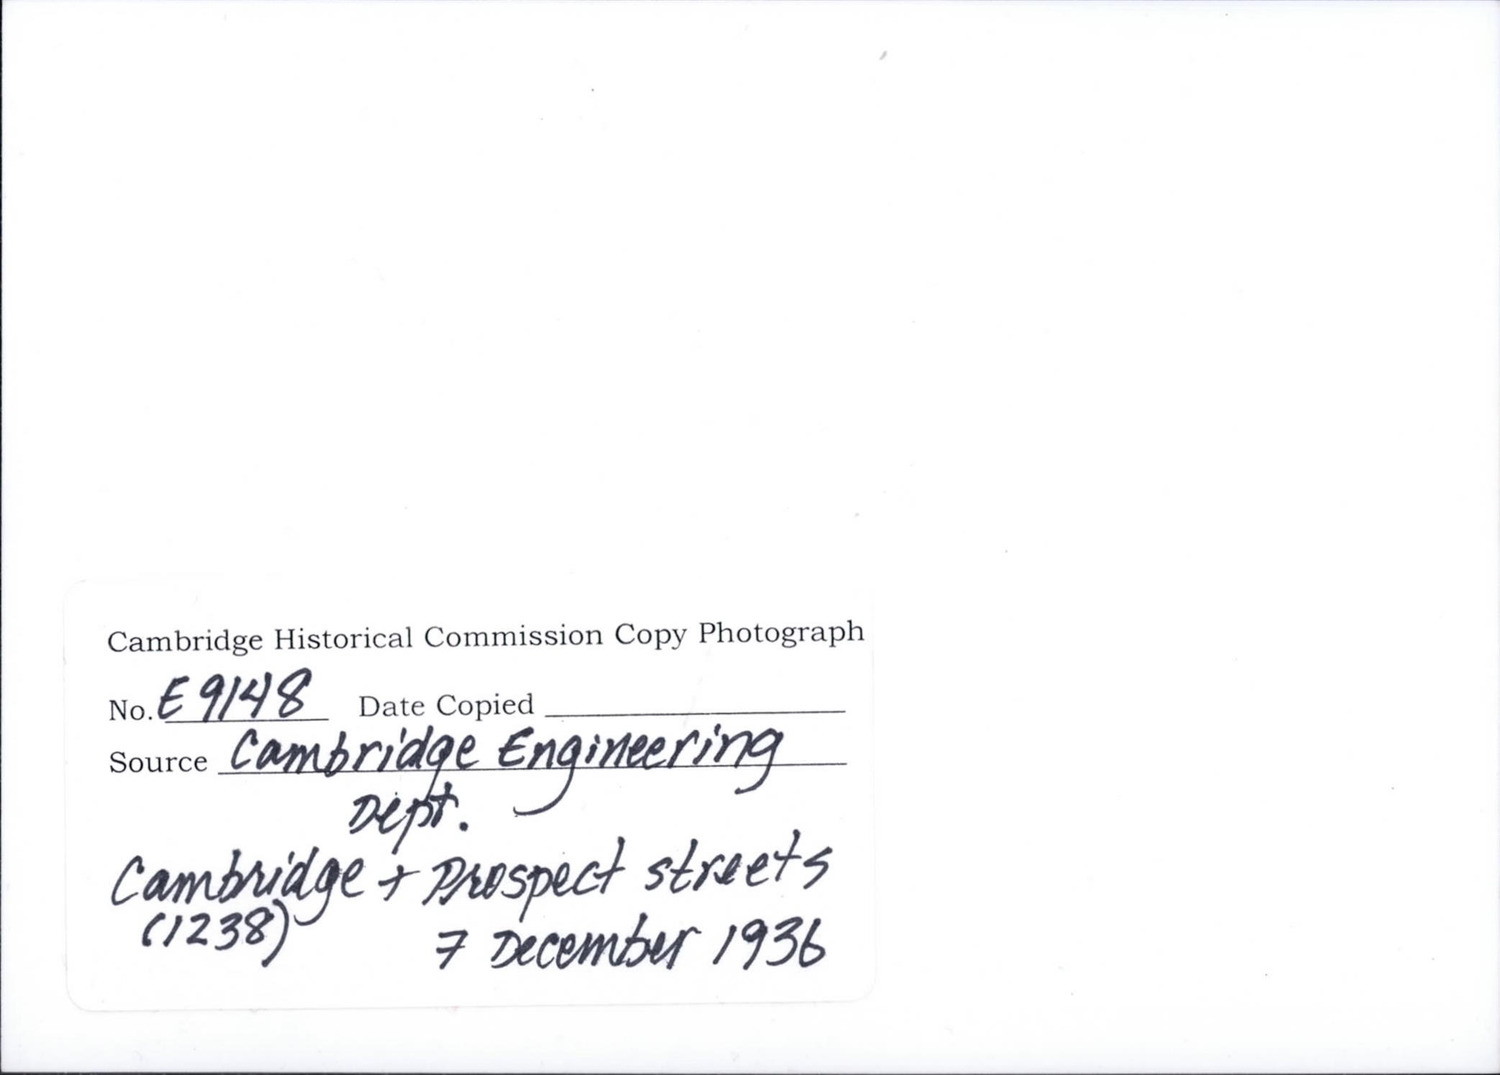 Cambridge Historical Commission Copy Photograph
No. E9148 Date Copied
Source Cambridge Engineering
Dept.
Cambridge + Prospect streets
(1238) 7 December 1936